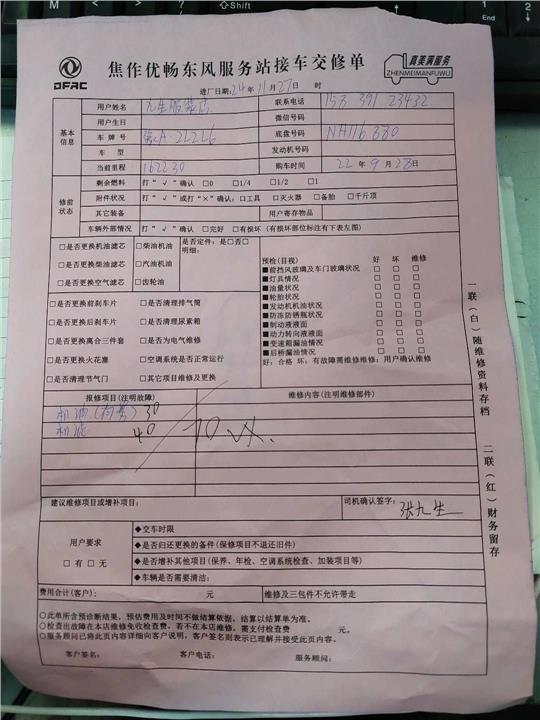 焦作优畅东风服务站接车交修单
DFAC
真美满服务
ZHENMEIMANFUWU
进厂日期:24年11月27日 时
基本信息
用户姓名 九生服装店 联系电话 158 391 23432
用户生日 微信号码
车牌号 底盘号码 NA116380
车型 发动机号码
当前里程 162230 购车时间 22年9月28日
修前状态
剩余燃料 打“√”确认 □0 □1/4 □1/2 □1
附件状况 打“√”或打“×”确认:□工具 □灭火器 □备胎 □千斤顶
其它装备 用户寄存物品
车辆外部情况 打“√”确认 □完好 □有损坏(有损坏部位标注有下表左图)
□是否更换机油滤芯 □柴油机油 是否定件:是□否□
明细:
□是否更换柴油滤芯 □汽油机油
□是否更换空气滤芯 □齿轮油
□是否更换前刹车片 □是否清理排气筒
□是否更换后刹车片 □是否清理尿素箱
□是否更换离合三件套 □是否为电气维修
□是否更换火花塞 □空调系统是否正常运行
□是否清理节气门 □其它项目维修及更换
预检(目视) 好 坏 维修
■前挡风玻璃及车门玻璃状况 □ □ □
■灯具情况 □ □ □
■油量状况 □ □ □
■轮胎状况 □ □ □
■发动机机油状况 □ □ □
■防冻防锈瓶状况 □ □ □
■制动液液面 □ □ □
■动力转向液液面 □ □ □
■变速箱漏油情况 □ □ □
■后桥漏油情况 □ □ □
好:合格 坏:有故障需维修维修:用户确认维修
报修项目(注明故障) 维修内容(注明维修部件)
机油 30
机滤 40
70
建议维修项目或增补项目: 司机确认签字:
张九生
用户要求
□有 □无
◆交车时限
◆是否归还更换的备件(保修项目不退还旧件)
◆是否增补其他项目(保养、年检、空调系统检查、加装项目等)
◆车辆是否需要清洁:
费用合计(客户): 元 维修及三包件不允许带走
○此单所含预诊断结果,预估费用及时间不做结算依据,结算以结算单为准。
○检查出故障在本店维修免收检查费,若不在本店维修,需支付检查费 元。
○服务顾问已将此页内容详细向客户说明,客户签名则表示已理解并接受此页内容。
客户签名: 客户电话: 服务顾问:
一联(白)随维修资料存档
二联(红)财务留存